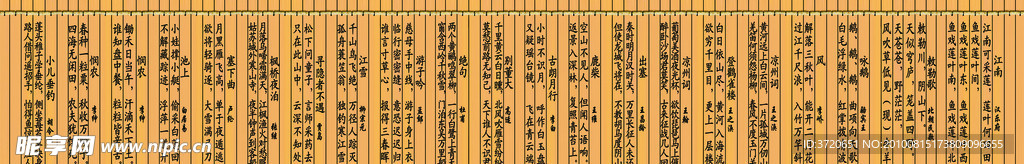 江南 汉乐府
江南可采莲，莲叶何田田
鱼戏莲叶间，鱼戏莲叶东
鱼戏莲叶西，鱼戏莲叶南
敕勒歌 北朝民歌
敕勒川，阴山下，
天似穹庐，笼盖四野
天苍苍，野茫茫
风吹草低见（现）
咏鹅 骆宾王
鹅，鹅，鹅，曲项向天歌
白毛浮绿水，红掌
风
解落三秋叶，能开二月花
过江千尺浪，入竹万竿斜
凉州词 王之涣
黄河远上白云间，一片孤城万仞
羌笛何须怨杨柳，春风不度
登鹳雀楼 王之涣
白日依山尽，黄河入海流
欲穷千里目，更上一层楼
凉州词
葡萄美酒夜光杯，欲饮琵琶
醉卧沙场君莫笑，古来征战几
出塞 王昌龄
秦时明月汉时关，万里长征人未
但使龙城飞将在，不教胡马度阴
鹿柴 王维
空山不见人，但闻人语响
返景入深林，复照青苔上
古朗月行 李白
小时不识月，呼作白玉盘
又疑瑶台镜，飞在青云端
别董大 高适
千里黄云白日曛，北风吹雁雪纷
莫愁前路无知己，天下谁人不识
绝句 杜甫
两个黄鹂鸣翠柳，一行白鹭上青
窗含西岭千秋雪，门泊东吴万里
游子吟 孟郊
慈母手中线，游子身上衣
临行密密缝，意恐迟迟归
谁言寸草心，报得三春晖
江雪 柳宗元
千山鸟飞绝，万径人踪灭
孤舟蓑笠翁，独钓寒江雪
寻隐者不遇
松下问童子，言师采药去
只在此山中，云深不知处
枫桥夜泊
月落乌啼霜满天，江枫渔火对愁
姑苏城外寒山寺，夜半钟声到客
塞下曲 卢纶
月黑雁飞高，单于夜遁逃
欲将轻骑逐，大雪满弓刀
池上 白居易
小娃撑小艇，偷采白莲回
不解藏踪迹，浮萍一道开
悯农 李绅
锄禾日当午，汗滴禾下土
谁知盘中餐，粒粒皆辛苦
悯农 李绅
春种一粒粟，秋收万颗子
四海无闲田，农夫犹饿死
小儿垂钓 胡令能
蓬头稚子学垂纶，侧坐莓苔
路人借问遥招手，怕得鱼惊
昵图网 www.nipic.cn
ID:3720651 NO:20100815173809096655